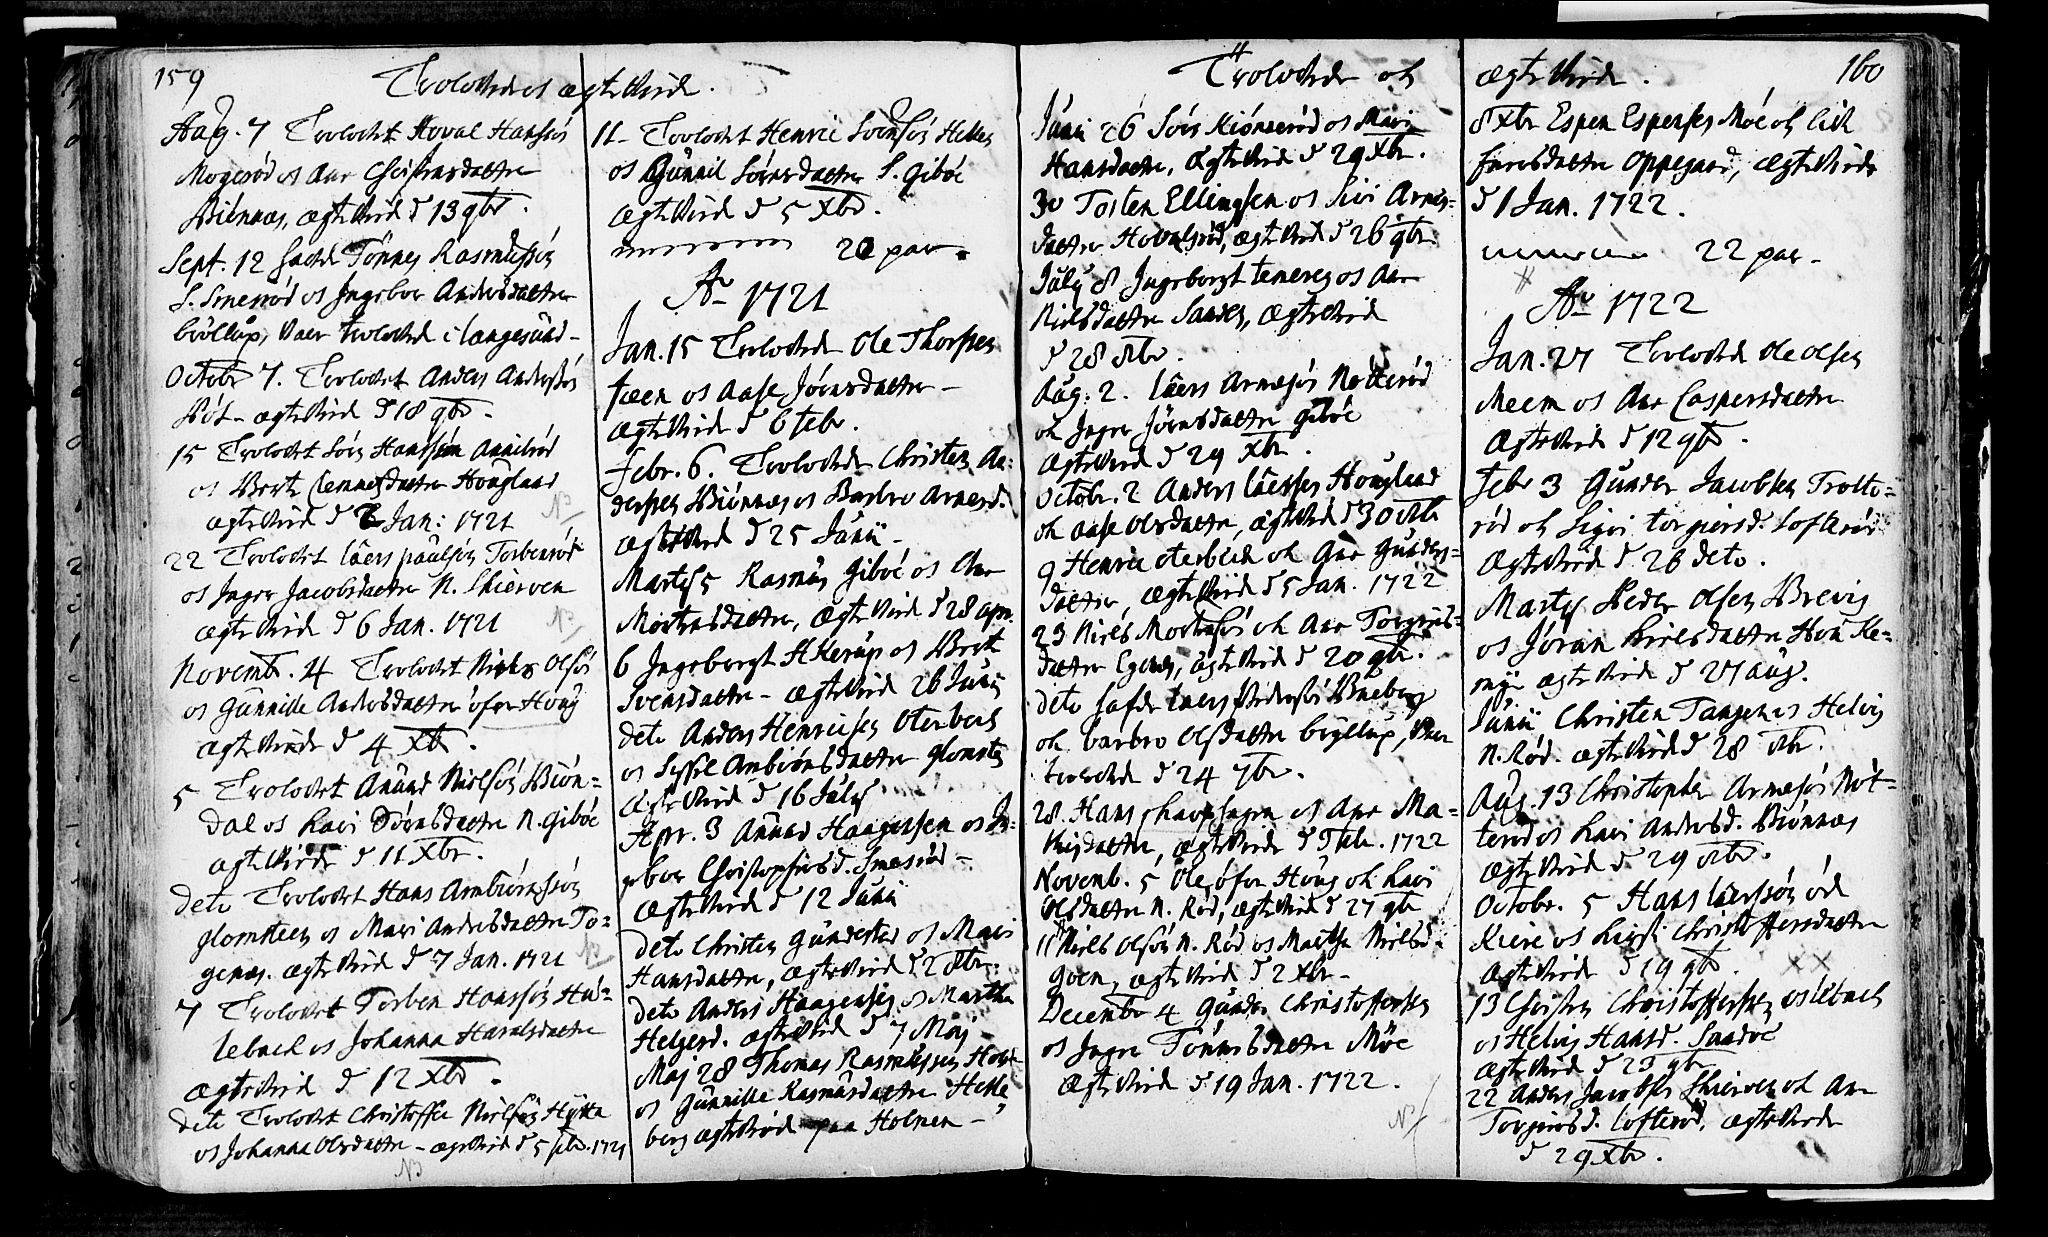 159
Trolovede og ægteviede.
Aug. 7 Trolovet Hoval Hanssøn
Mogerød og Ane Christensdaatter
Biønnæs, ægtevied d 13 9br.
Sept. 12 hafde Tønnes Rasmussøn
S. Smerød og Ingebor Andersdaatter
brøllup, vaer trolovede i langesund -
Octobr 7. Trolovet Anders Anderssøn
ægtevied d 18 9br.
15 Trolovet Søren Hanssøn
og Berte Clemmesdaatter Hougland
ægtevied d 2 Jan: 1721
22 Trolovet laers paulsøn Torbenrød
og Inger Jacobsdaatter N. Skierven
ægtevied d 6 Jan. 1721
Novemb. 4 Trolovet Niels Olsøn
og Gunnille Andersdaatter ofer Houg
ægteviede d 4 Xbr.
5 Trolovet Anund Nielsøn Biøn=
dal og Kari Sørensdaatter N. Giböe
ægteviede d 11 Xbr.
deto Trolovet Hans Ambiørnssøn
glomsteen og Mari Andersdaatter To=
genæs. ægtevied d 7 Jan. 1721
7 Trolovet Torben Hanssøn Has=
lebach og Johanna Haralsdaatter
ægtevied d 12 Xbr.
deto Trolovet Christoffer Nielsøn Hytta
og Johanna Olsdaatter - ægtevied d 5 febr. 1721
NB
11 - Trolovet Henric Svensøn Helle
og Gunnil Sørensdaatter S. Giböe
ægtevied d 5 Xbr.
20 par.
Ao 1721
Jan. 15 Trolovede Ole Thorsen
fæen og Aase Jørensdaatter -
ægtevied d 6 febr.
Febr. 6. Trolovede Christen An=
dersen Biønnæs og Barbro Arnesd.
ægtevied d 25 Junii -
Martij 5 Rasmus Giböe og Ane
Mortensdaatter, ægtevied d 28 apr.
6 Ingebergt Akerup og Berte
Svensdaatter - ægtevied 26 Junij
deto Anders Henricsen Oterbech
og Sissel Ambiørnsdaatter glomsten
ægtevied d 16 Julij
Apr. 3 Anund Haagensen og In=
gebor Christophersd. Smerød -
ægtevied d 12 Junii
deto Christen Gundestad og Mari
Hansdaatter, ægtevied d 2 8br.
deto Anders Haagensen og Martha
Helgesd. ægtevied d 7 Maj
Maj 28 Thomas Rasmussen
og Gunnille Rasmusdaatter Helle=
berg ægtevied paa Holmen -
Trolovede oh
Junii 26 Sørn Kiønnerød og Mari
Hansdaatter, ægtevied d 29 Xbr.
30 Tosten Ellingsen og Siri Arnes=
datter Hovalsrød, ægtevied d 26 9br.
Julij 8 Ingebergt temeren og Ane
Nielsdaatter Sanden, ægtevied
d 28 8br.
Aug. 2. laers Arnesøn Notterød
oh Inger Jørensdaatter Giböe
ægtevied d 29 Xbr.
Octobr. 2 Anders laersen Hougland
oh Aase Olsdaatter, ægtevied d 30 8br
9 Henric oterbech oh Ane Gunders=
datter, ægtevied d 5 Jan. 1722
23 Niels Mortensøn oh Ane Torgiers=
datter Egenes, ægtevied d 20 9br.
deto hafde laers Pedersøn
oh barbro Olsdaatter bryllup, vaer
trolovede d 24 7br.
28. Hans og Ane Ma=
thisdaatter, ægteviede d febr. 1722
Novemb. 5 Ole ofer Houg oh Kari
Olsdaatter N. Rød, ægtevied d 27 9br
11 Niels Olsøn N. Rød og Marthe Nielsd.
Goen, ægtevied d 2 Xbr -
Decembr 4 Gunder Christoffersen
og Inger Tønnesdaatter Möe
ægtevied d 19 Jan. 1722.
NB
ægteviede.
160
8 Xbr Espen Espensen Möe oh lisbet
daatter Oppegaard, ægteviede
d 1 Jan. 1722.
22 par -
Ao 1722
Jan. 27 Trolovede Ole Olsen
Meem og Ane Caspersdaatter
ægtevied d 12 9br.
Febr 3 Gunder Jacobsen Trotte=
rød oh Sigri torgiersd. lofterød
ægtevied d 26 deto.
Martij Peder Olsen Brevig
og Jøran Nielsdaatter
ægteviede d 27 aug.
Junii Christen Tangen og Helvig
N. Rød. ægtevied d 28 8br.
Aug. 13 Christopher Arnesøn Not=
terød og Kari Andersd. Biønnæs
ægtevied d 29 8br.
Octobr. 5 Hans laerssøn
og Kirsti Christoffersdaatter
ægteviede d 19 9br
XX
13 Christen Christoffersen
og Helvig Hansd. Sandöe
ægtevied d 23 9br
22 Anders Jacobsen Skierven oh Ane
Torgiersd. lofterød, ægteviede
d 29 Xbr.